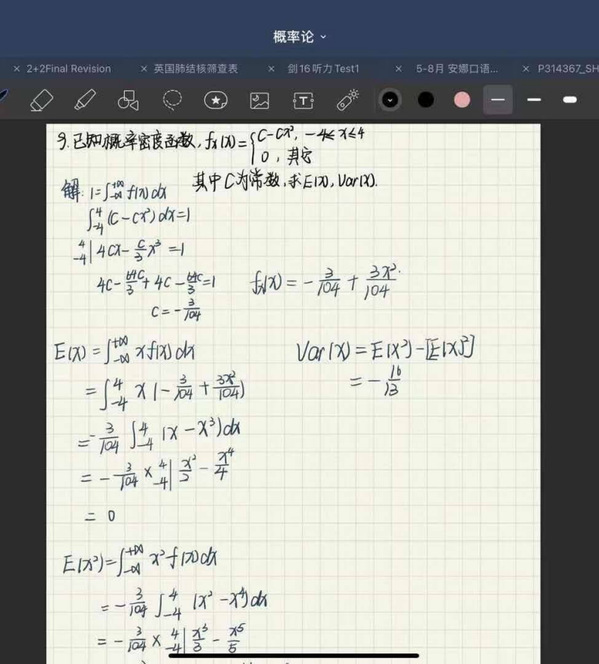 概率论
× 2+2Final Revision × 英国肺结核筛查表 × 剑16听力Test1 × 5-8月 安娜口语... × P314367_SH
T
9. 已知概率密度函数, fx(x) = { C-Cx², -4≤x≤4
0, 其它
其中C为常数, 求E(x), Var(x).
解: 1=∫_{-∞}^{+∞} f(x)dx
∫_{-4}^{4} (C-Cx²)dx=1
_{-4}^{4}| 4Cx - C/3 x³ = 1
4C - 64C/3 + 4C - 64C/3 = 1
C = -3/104
fx(x) = -3/104 + 3x²/104
E(x) = ∫_{-∞}^{+∞} xf(x)dx
= ∫_{-4}^{4} x(-3/104 + 3x²/104)
= -3/104 ∫_{-4}^{4} (x-x³)dx
= -3/104 × _{-4}^{4}| x²/2 - x⁴/4
= 0
Var(x) = E(x²)-[E(x)²]
= -16/13
E(x²)=∫_{-∞}^{+∞} x²f(x)dx
= -3/104 ∫_{-4}^{4} (x²-x⁴)dx
= -3/104 × _{-4}^{4}| x³/3 - x⁵/5